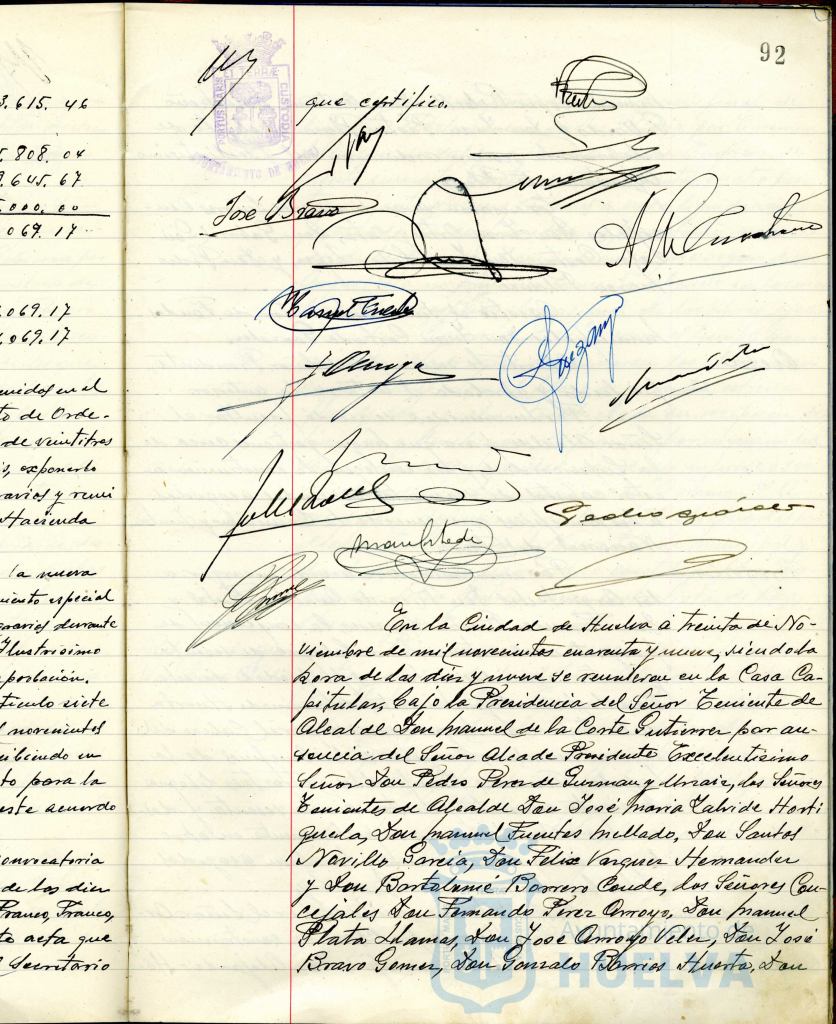 3.615.46
5.808.04
9.645.67
5.000.00
.069.17
.069.17
.069.17
enidos en el
to de Orde-
de veintitres
is, exponerlo
ravios y remi
Hacienda
la nueva
miento especial
gravios durante
Ilustrisimo
rporación.
tículo siete
l novecientos
cibiendo en
to para la
este acuerdo
onvocatoria
de las diez
Franco, Franco,
te acta que
l Secretario
92
PORTUS MARIS ET TERRAE CUSTODIA
AYUNTAMIENTO DE HUELVA
que certifico.
José Bravo
En la Ciudad de Huelva á treinta de No-
viembre de mil novecientos cuarenta y nueve, siendo la
hora de las diez y nueve se reunieron en la Casa Ca-
pitular, bajo la Presidencia del Señor Teniente de
Alcalde Don Manuel de la Corte Gutierrez por au-
sencia del Señor Alcade Presidente Excelentisimo
Señor Don Pedro Perez de Guzman y Urzaiz, los Señores
Tenientes de Alcalde Don José Maria Zalvide Horti
guela, Don Manuel Fuentes Mellado, Don Santos
Novillo García, Don Félix Vazquez Hernandez
y Don Bartolomé Borrero Conde, los Señores Con-
cejales Don Fernando Perez Arroyo, Don Manuel
Plata Llamas, Don José Arroyo Velez, Don José
Bravo Gomez, Don Gonzalo Barrios Huerta, Don
Ayuntamiento de
HUELVA